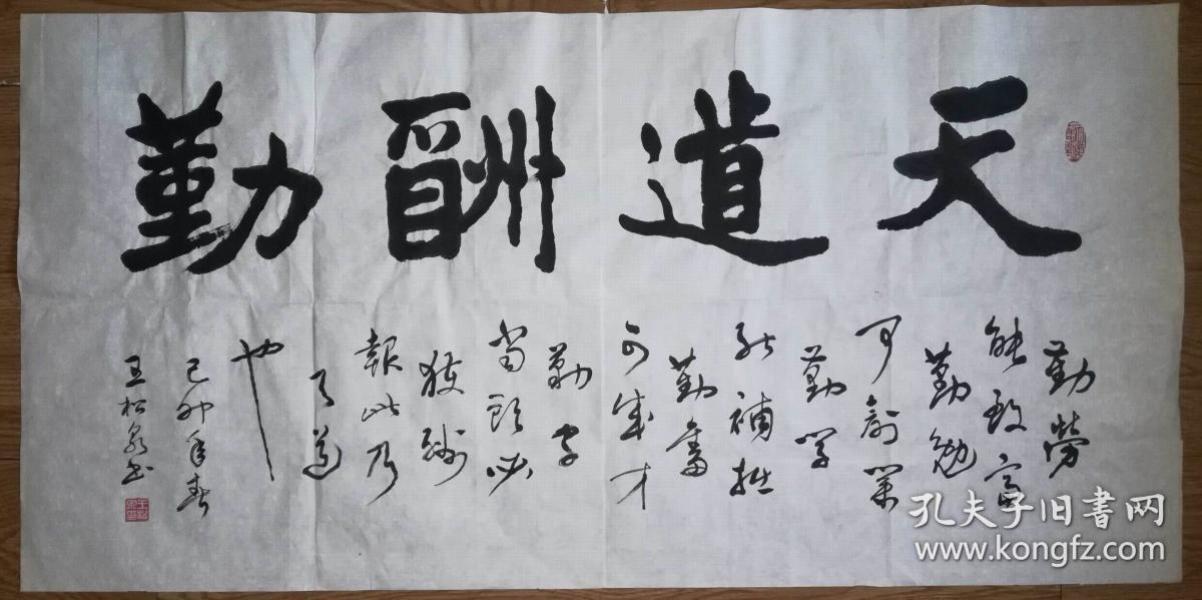 天道酬勤
勤勞
能致富
勤勉
可創業
勤學
能補拙
勤奮
可成才
勤字
當頭必
獲酬
報此乃
天道
也
己卯年春
王松泉书
孔夫子旧書网
www.kongfz.com